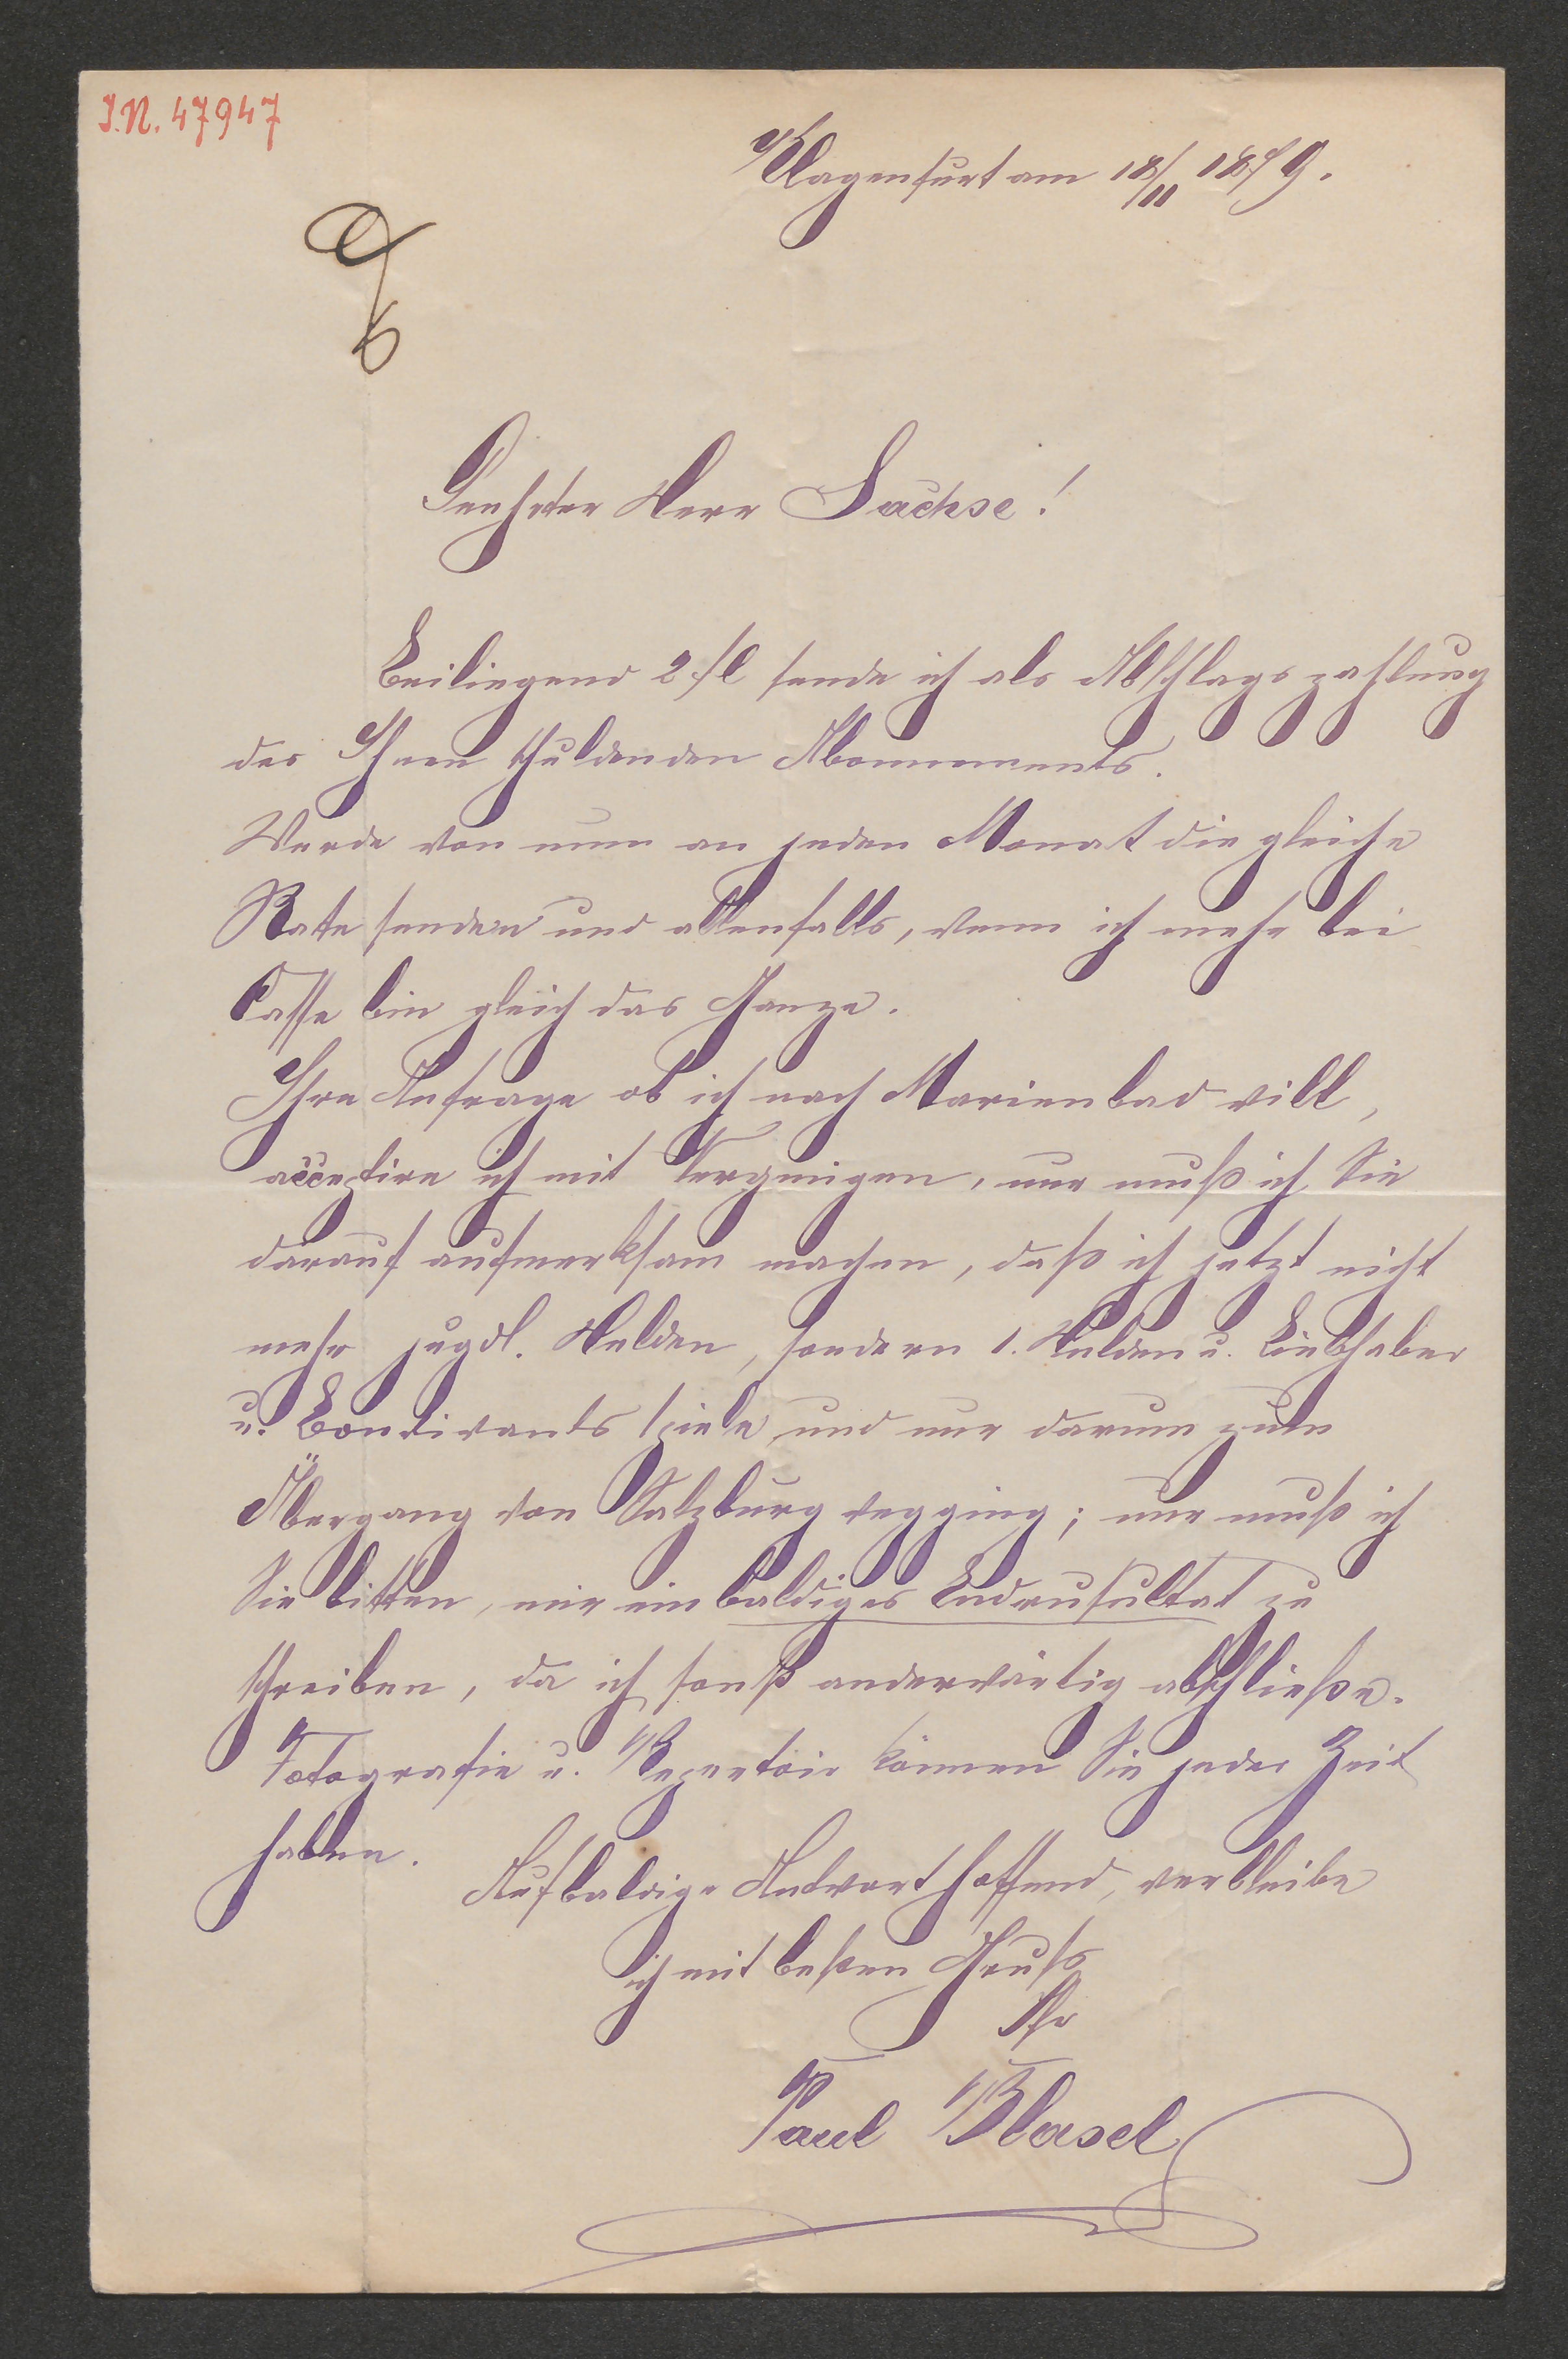 I.N. 47947
Klagenfurt am 18/11 1879.
Geehrter Herr Sachse!
Beiliegend 2 fl sende ich als Abschlagszahlung
des Ihnen schuldenden Abonnements.
Werde von nun an jeden Monat die gleiche
Rate senden und allenfalls, wenn ich mehr bei
Casse bin gleich das Ganze.
Ihre Anfrage ob ich nach Marienbad will,
acceptire ich mit Vergnügen, nur muß ich Sie
darauf aufmerksam machen, daß ich jetzt nicht
mehr jugdl. Helden, sondern 1. Helden u. Liebhaber
u. Bonvivants spiele und nur darum zum
Übergang von Salzburg wegging; nur muß ich
Sie bitten, mir ein baldiges Endresultat zu
schreiben, da ich sonst anderwärtig abschließe.
Fotografie u. Repertoir können Sie jeder Zeit
haben.
Auf baldige Antwort hoffend, verbleibe
ich mit besten Gruß
Ihr
Paul Blasel